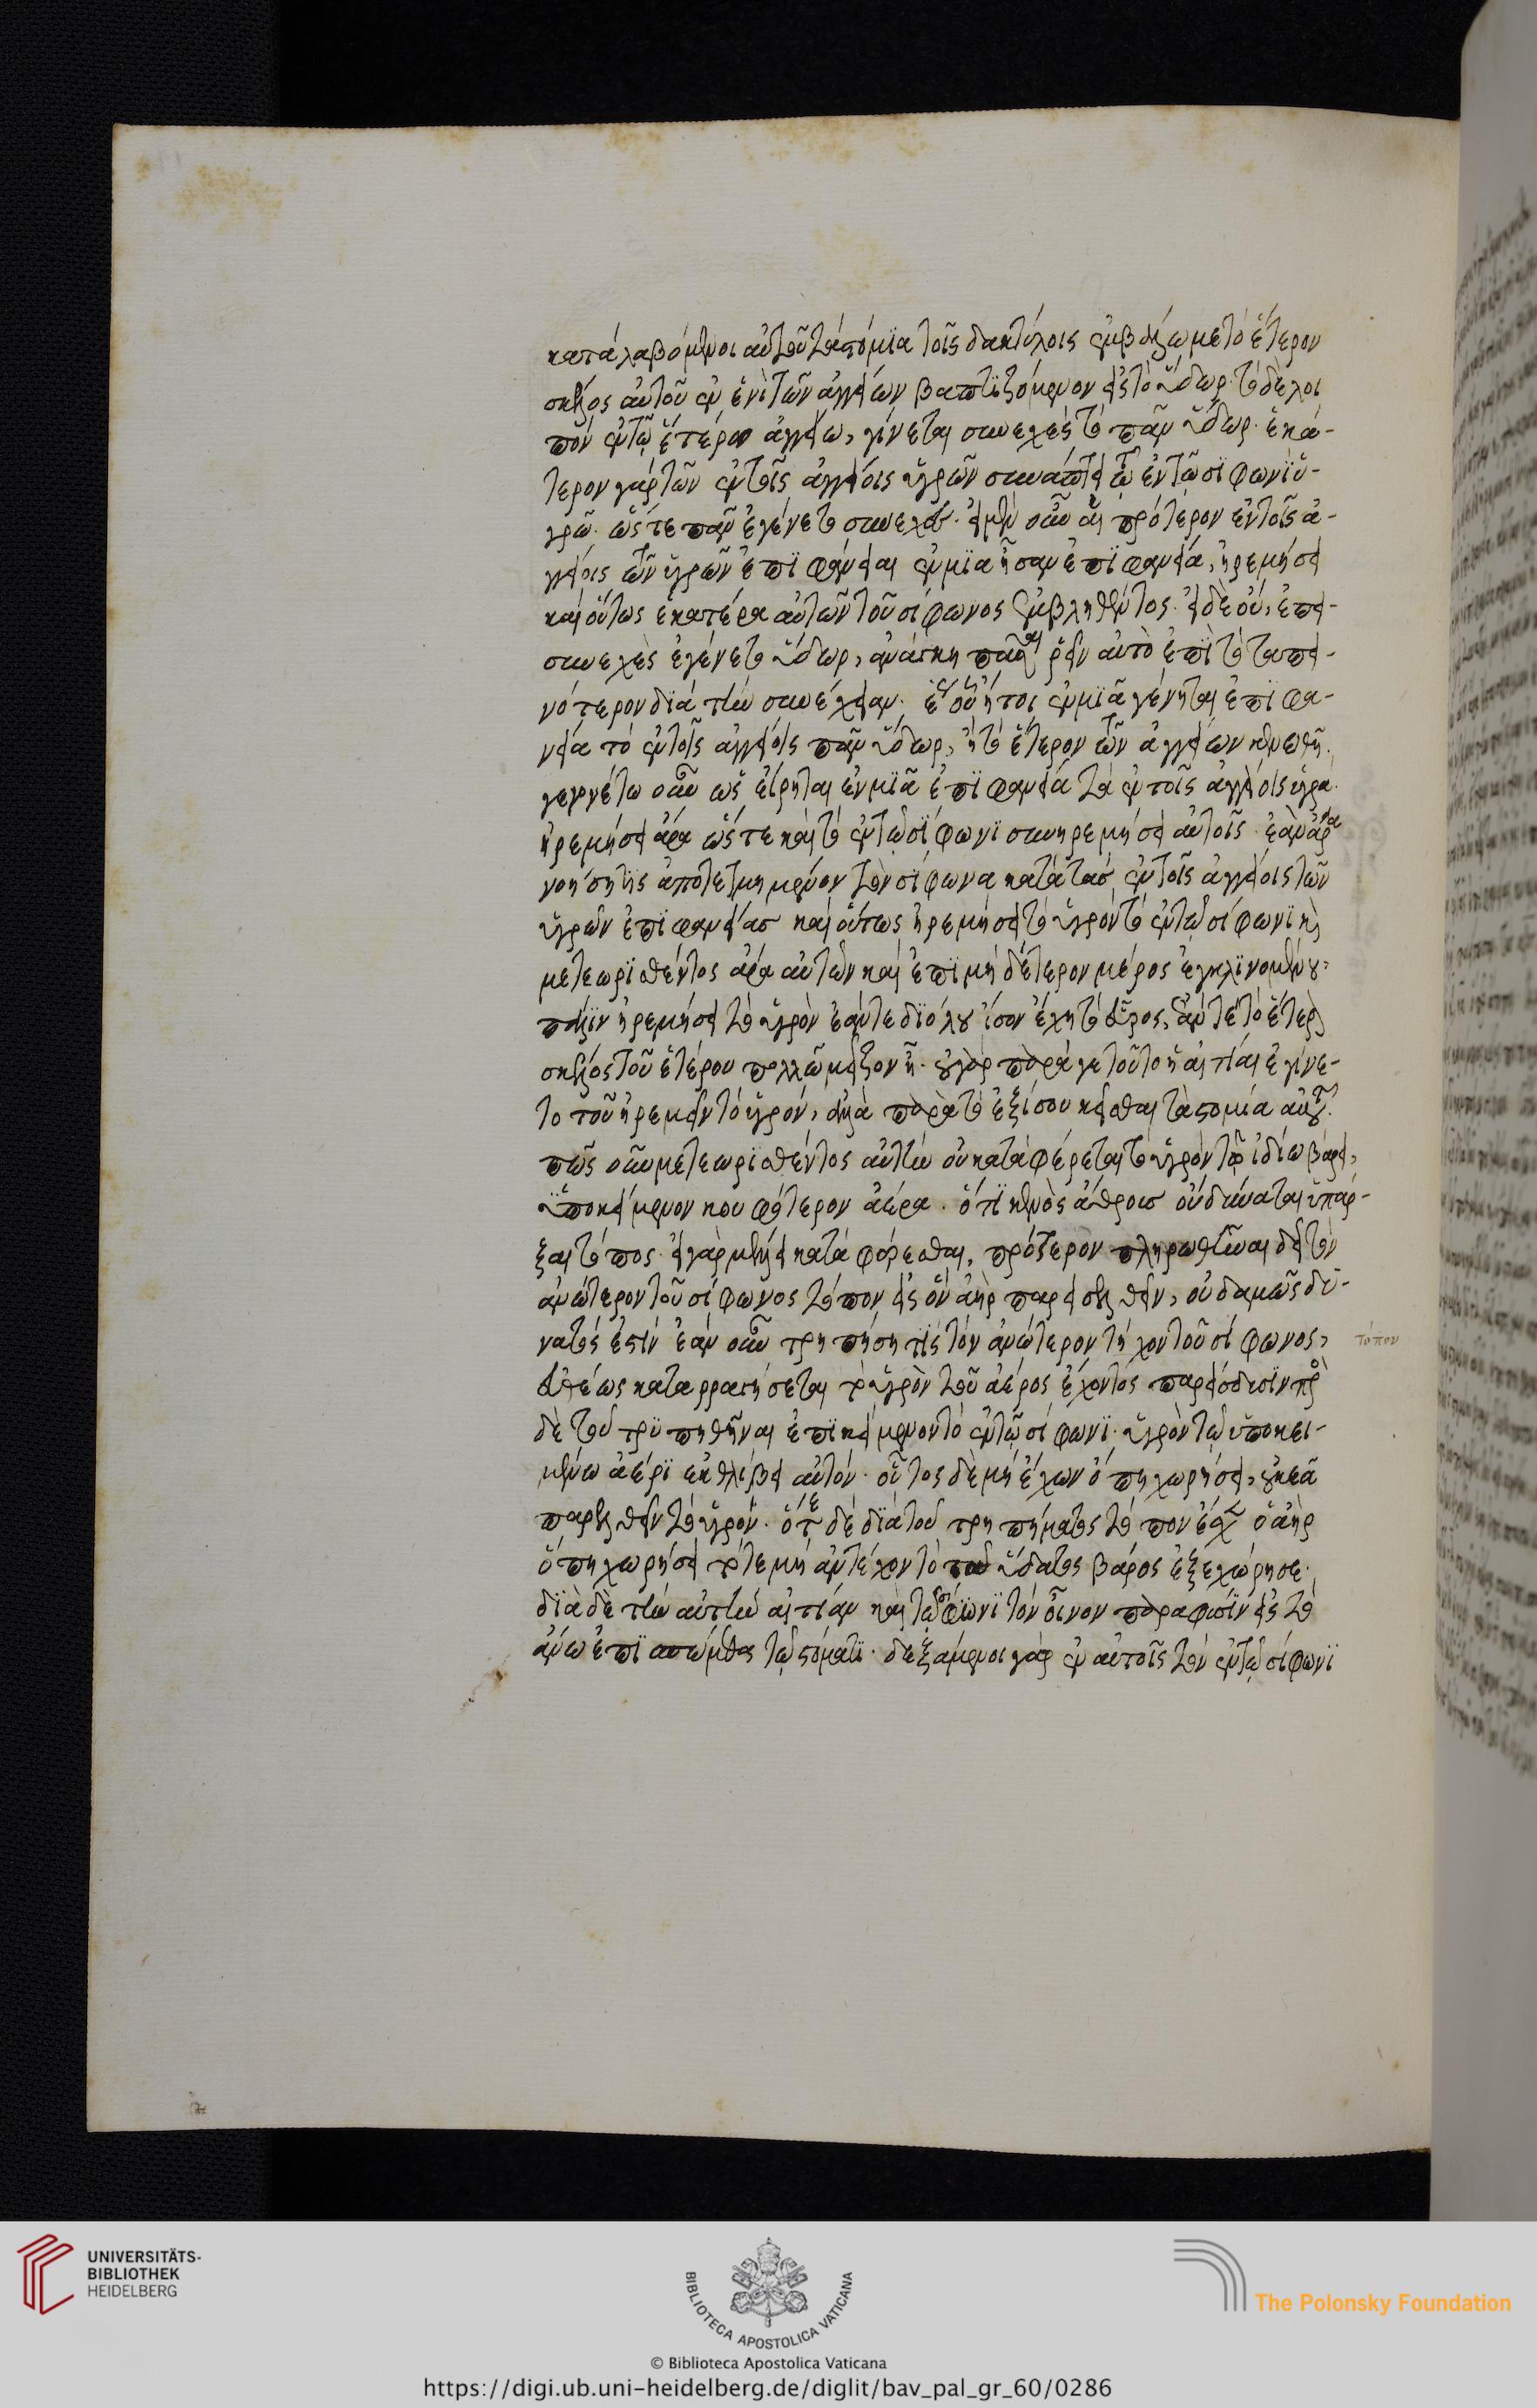 καταλαβόμενοι αὐτοῦ τὰ στόμια τοῖς δακτύλοις ἐμβάλωμεν τὸ ἕτερον
σκέλος αὐτοῦ ἐν ἑνὶ τῶν ἀγγείων βαπτιζόμενον εἰς τὸ ὕδωρ. τὸ δὲ λοι
πὸν ἐν τῷ ἑτέρῳ ἀγγείω, γίνεται συνεχὲς τὸ πᾶν ὕδωρ. ἑκά-
τερον γὰρ τῶν ἐν τοῖς ἀγγείοις ὑγρῶν συνάπτει τῶ ἐν τῶ σίφωνι ὑ-
γρῶ. ὥστε πᾶν ἐγένετο συνεχές. εἰ μὲν οὖν αἱ πρότερον ἐν τοῖς ἀ-
γγείοις τῶν ὑγρῶν ἐπιφάνειαι ἐν μιᾶ ἦσαν ἐπιφανεία, ἠρεμήσει
καὶ οὕτως ἑκατέρα αὐτῶν τοῦ σίφωνος ἐμβληθέντος. εἰ δὲ οὐ, ἐπεὶ
συνεχὲς ἐγένετο ὕδωρ, ἀνάγκη πᾶσα ῥεῖν αὐτὸ ἐπὶ τὸ ταπει-
νότερον διὰ τὴν συνέχειαν. ἕως οὗ ἤτοι ἐν μιᾶ γένηται ἐπιφα-
νεία τὸ ἐν τοῖς ἀγγείοις πᾶν ὕδωρ, ἢ τὸ ἕτερον τῶν ἀγγείων κενωθῆ.
γεγονέτω οὖν ὡς εἴρηται ἐν μιᾶ ἐπιφανεία τὰ ἐν τοῖς ἀγγείοις ὑγρά.
ἠρεμήσει ἄρα ὥστε καὶ τὸ ἐν τῶ σίφωνι συνηρεμήσει αὐτοῖς. ἐὰν ἄρα
νοήση τις ἀποτετμημένον τὸν σίφωνα κατὰ τὰς ἐν τοῖς ἀγγείοις τῶν
ὑγρῶν ἐπιφανείας καὶ οὕτως ἠρεμήσει τὸ ὑγρὸν τὸ ἐν τῶ σίφωνι καὶ
μετεωρισθέντος ἄρα αὐτῶν καὶ ἐπὶ μηδέτερον μέρος ἐγκλινομένου,
πάλιν ἠρεμήσει τὸ ὑγρὸν ἐάν τε διόλου ἴσον ἔχη τὸ εὖρος, ἐάν τε τὸ ἕτερον
σκέλος τοῦ ἑτέρου πολλῶ μεῖζον ἦ. οὐ γὰρ παρά γε τοῦτο ἡ αἰτία ἐγίνε-
το τοῦ ἠρεμεῖν τὸ ὑγρόν, ἀλλὰ παρὰ τὸ ἐξίσου κεῖσθαι τὰ στομία αὐτοῦ.
πῶς οὖν μετεωρισθέντος αὐτὴν οὐ καταφέρεται τὸ ὑγρὸν τῶ ἰδίω βάρει,
ὑποκείμενον κουφότερον ἀέρα. ὅτι κενὸς ἄθρους οὐ δύναται ὑπάρ-
ξαι τόπος. εἰ γὰρ μέλλει καταφέρεσθαι, πρότερον πληρωθῆναι δεῖ τὸν
ἀνώτερον τοῦ σίφωνος τόπον εἰς ὃν ἀὴρ παρεισελθεῖν, οὐδαμῶς δύ-
νατός ἐστίν ἐὰν οὖν τρηπήση τὶς τὸν ἀνώτερον τῆχον τοῦ σίφωνος, τόπον
εὐθέως καταρραγήσεται τὸ ὑγρὸν τοῦ ἀέρος ἔχοντος παρείσδυσιν πρὸ
δὲ τοῦ τρυπηθῆναι ἐπικείμενον τὸ ἐν τῶ σίφωνι ὑγρὸν τῶ ὑποκει-
μένω ἀέρι ἐκθλίβει αὐτόν. οὗτος δὲ μὴ ἔχων ὅπη χωρήσει, οὐκ ἐᾶ
παρελθεῖν τὸ ὑγρόν. ὅτε δὲ διὰ τοῦ τρηπήματος τόπον ἔσχεν ὁ ἀὴρ
ὅπη χωρήσει τότε μὴ ἀντέχον τὸ τοῦ ὕδατος βάρος ἐξεχώρησε.
διὰ δὲ τὴν αὐτὴν αἰτίαν καὶ τῶ σίφωνι τὸν οἶνον παραφωσίν εἰς τὸ
ἄνω ἐπισπώμεθα τῶ στόματι. δεξάμενοι γὰρ ἐν αὐτοῖς τὸν ἐν τῶ σίφωνι
UNIVERSITÄTS-
BIBLIOTHEK
HEIDELBERG
BIBLIOTECA APOSTOLICA VATICANA
The Polonsky Foundation
© Biblioteca Apostolica Vaticana
https://digi.ub.uni-heidelberg.de/diglit/bav_pal_gr_60/0286